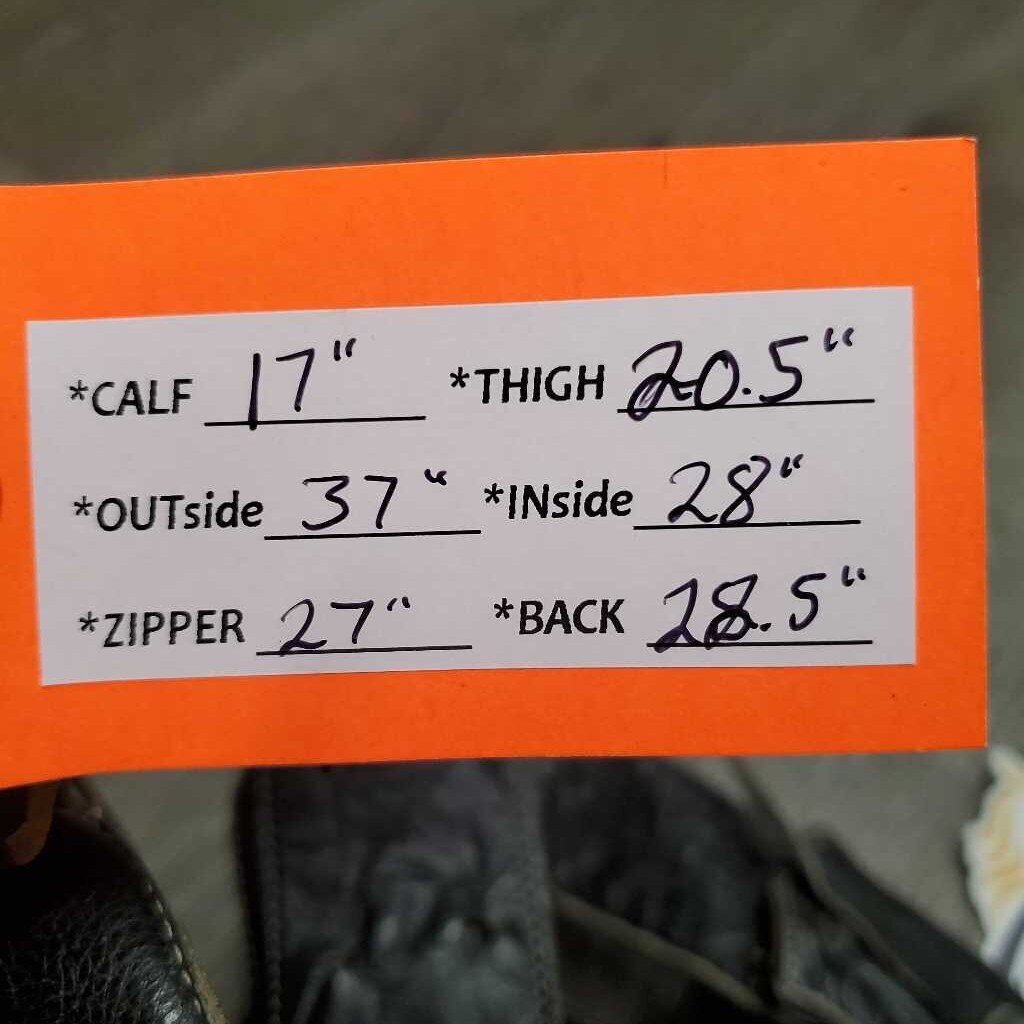 *CALF 17" *THIGH 20.5"
*OUTside 37" *INside 28"
*ZIPPER 27" *BACK 28.5"